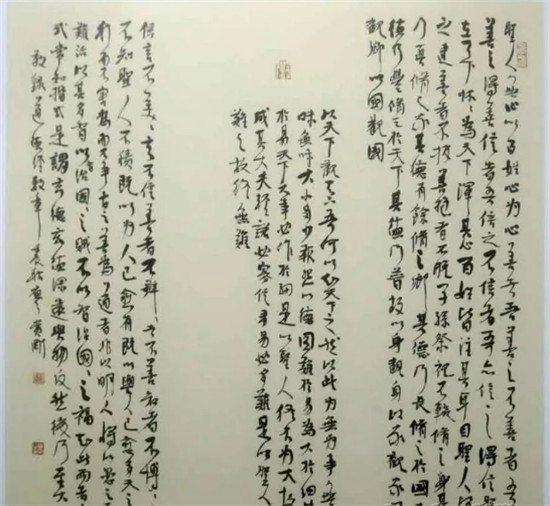 聖人無心以百姓心為心善者吾善之不善者吾
善之得善信者吾信之不信者吾亦信之得信聖
在天下怵怵為天下渾其心百姓皆注其耳目聖人
之建善者不拔善抱者不脫子孫祭祀不輟修之身其
乃真修之家其德有餘修之鄉其德乃長修之於國
德乃豐修之於天下其德乃普故以身觀身以家觀家
觀鄉以國觀國
以天下觀天下吾何以知天下之然以此為無為事無事
味無味大小多少報怨以德圖難於易為大於細
於易天下大事必作於細是以聖人終不為大故
成其大夫輕諾必寡信多易必多難是以聖人
難之故終無難
信言不美美言不信善者不辯辯者不善知者不博
不知聖人不積既以為人己愈有既以與人己愈多天之
利而不害為而不爭古之善為道者非以明人將以愚之
難治以其多智以智治國國之賊不以智治國國之福知此兩者
式常知楷式是謂玄德玄德深遠與物反然後乃至大
敬錄道德經數章